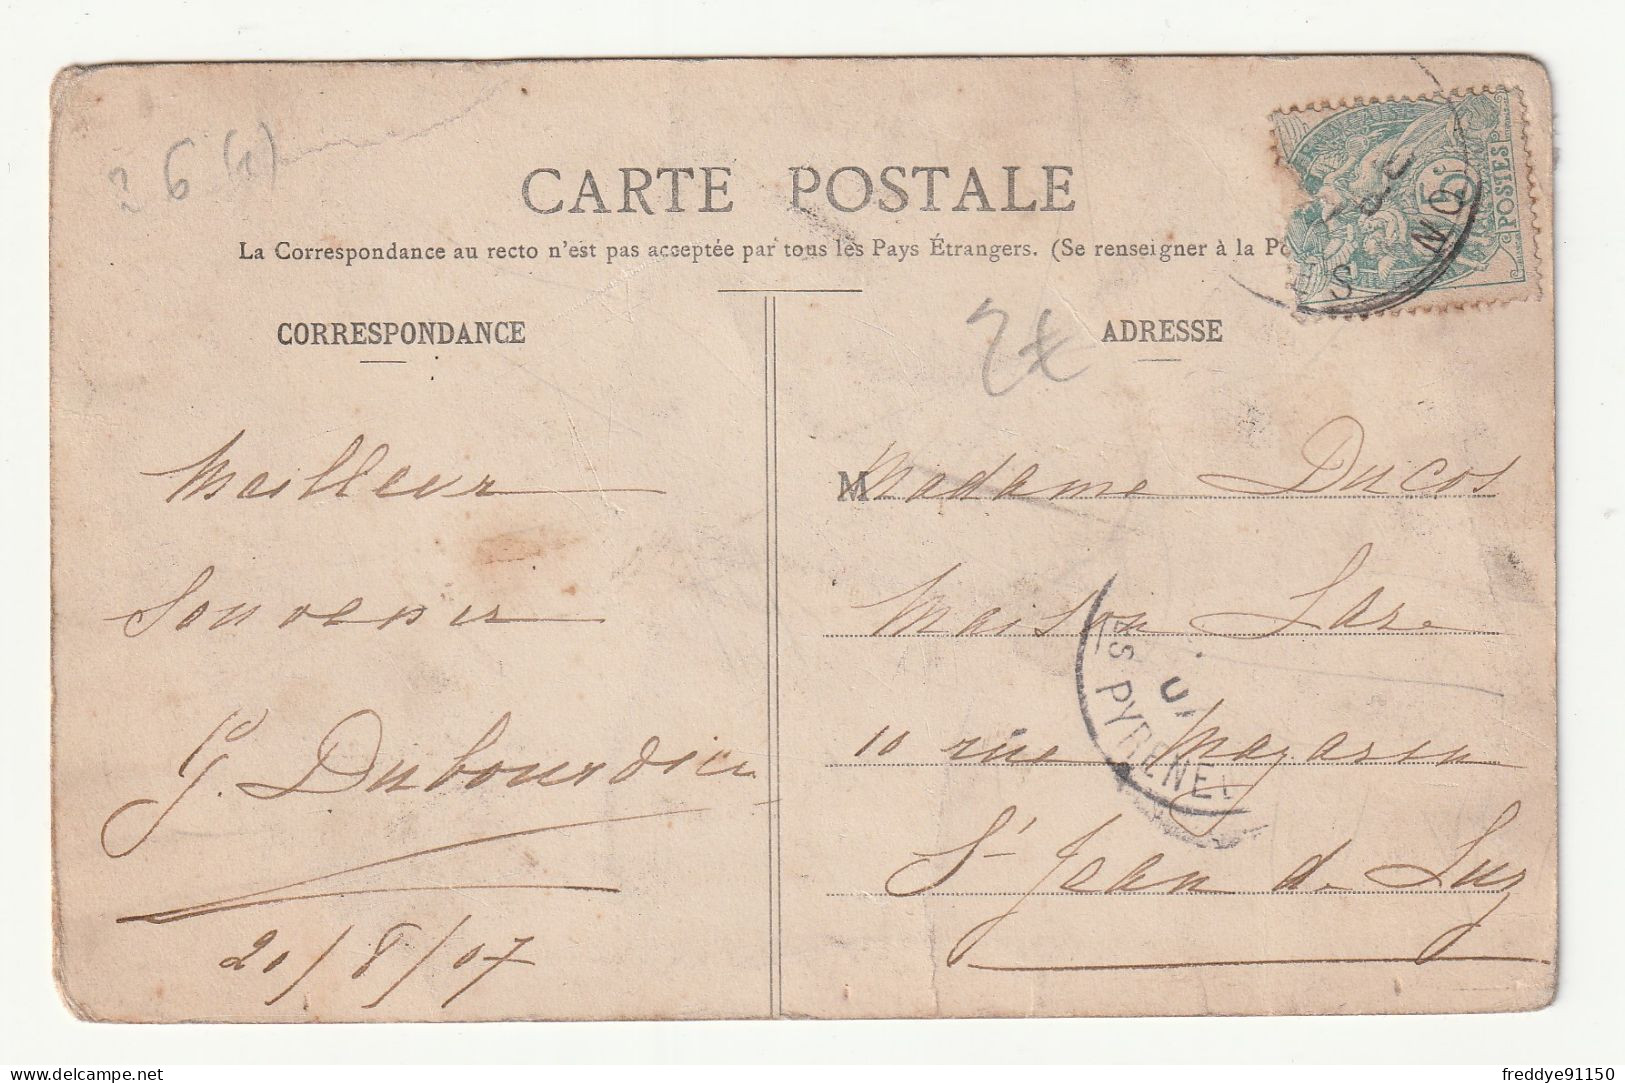 2 6 (1)
CARTE POSTALE
La Correspondance au recto n'est pas acceptée par tous les Pays Étrangers. (Se renseigner à la Po
5c
POSTES
CORRESPONDANCE
ADRESSE
2€
Meilleur
Souvenir
G. Dubourdieu
20/8/07
M Madame Ducos
Maison Lare
10 rue Mazarin
St Jean de Luz
ES PYRENE
freddye91150